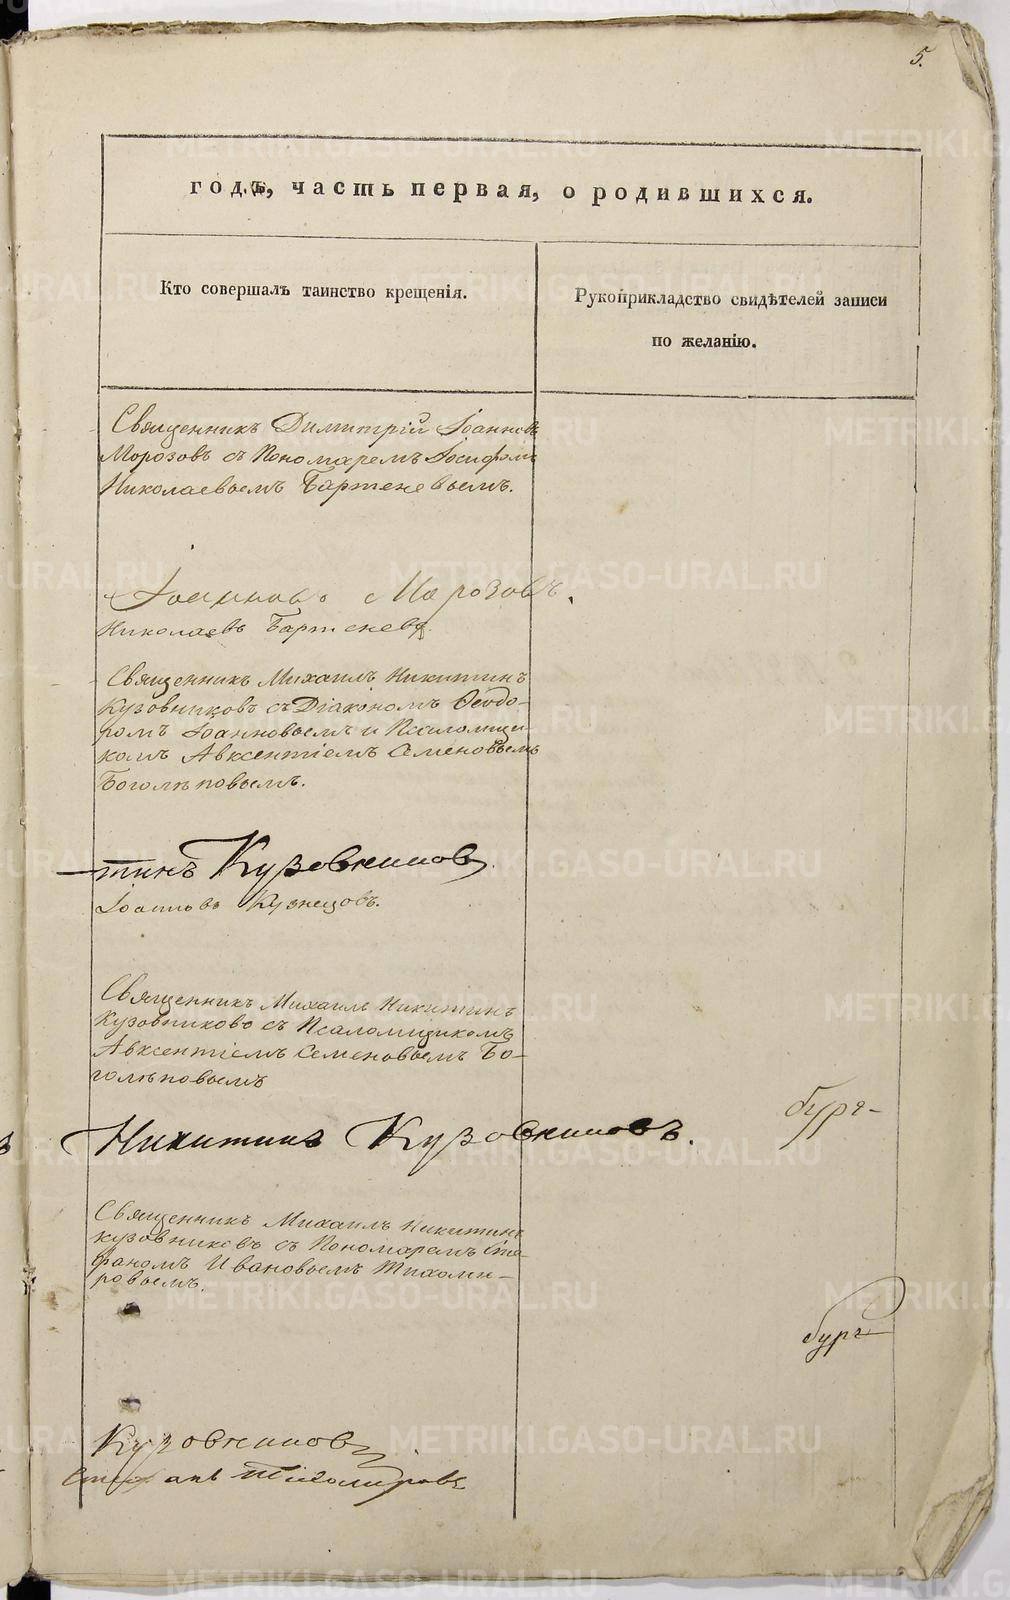 5.
годъ, часть первая, о родившихся.
Кто совершалъ таинство крещенія.
Рукоприкладство свидѣтелей записи
по желанію.
Священникъ Димитрій Іоанновъ
Морозовъ съ Пономаремъ Іосифомъ
Николаевымъ Бартеневымъ.
Іоанновъ Морозовъ.
Николаевъ Бартеневъ
Священникъ Михаилъ Никитинъ
Кузовниковъ съ Діакономъ Ѳеодо-
ромъ Іоанновымъ и Псаломщи-
комъ Авксентіемъ Семеновымъ
Боголѣповымъ.
тинъ Кузовниковъ.
Іоанновъ Кузнецовъ.
Священникъ Михаилъ Никитинъ
Кузовниковъ съ Псаломщикомъ
Авксентіемъ Семеновымъ Бо-
голѣповымъ
бург-
Никитинъ Кузовниковъ.
Священникъ Михаилъ Никитинъ
Кузовниковъ съ Пономаремъ Сте-
фаномъ Ивановымъ Тихоми-
ровымъ.
бург-
Кузовниковъ
Стефанъ Тихомировъ
METRIKI.GASO-URAL.RU